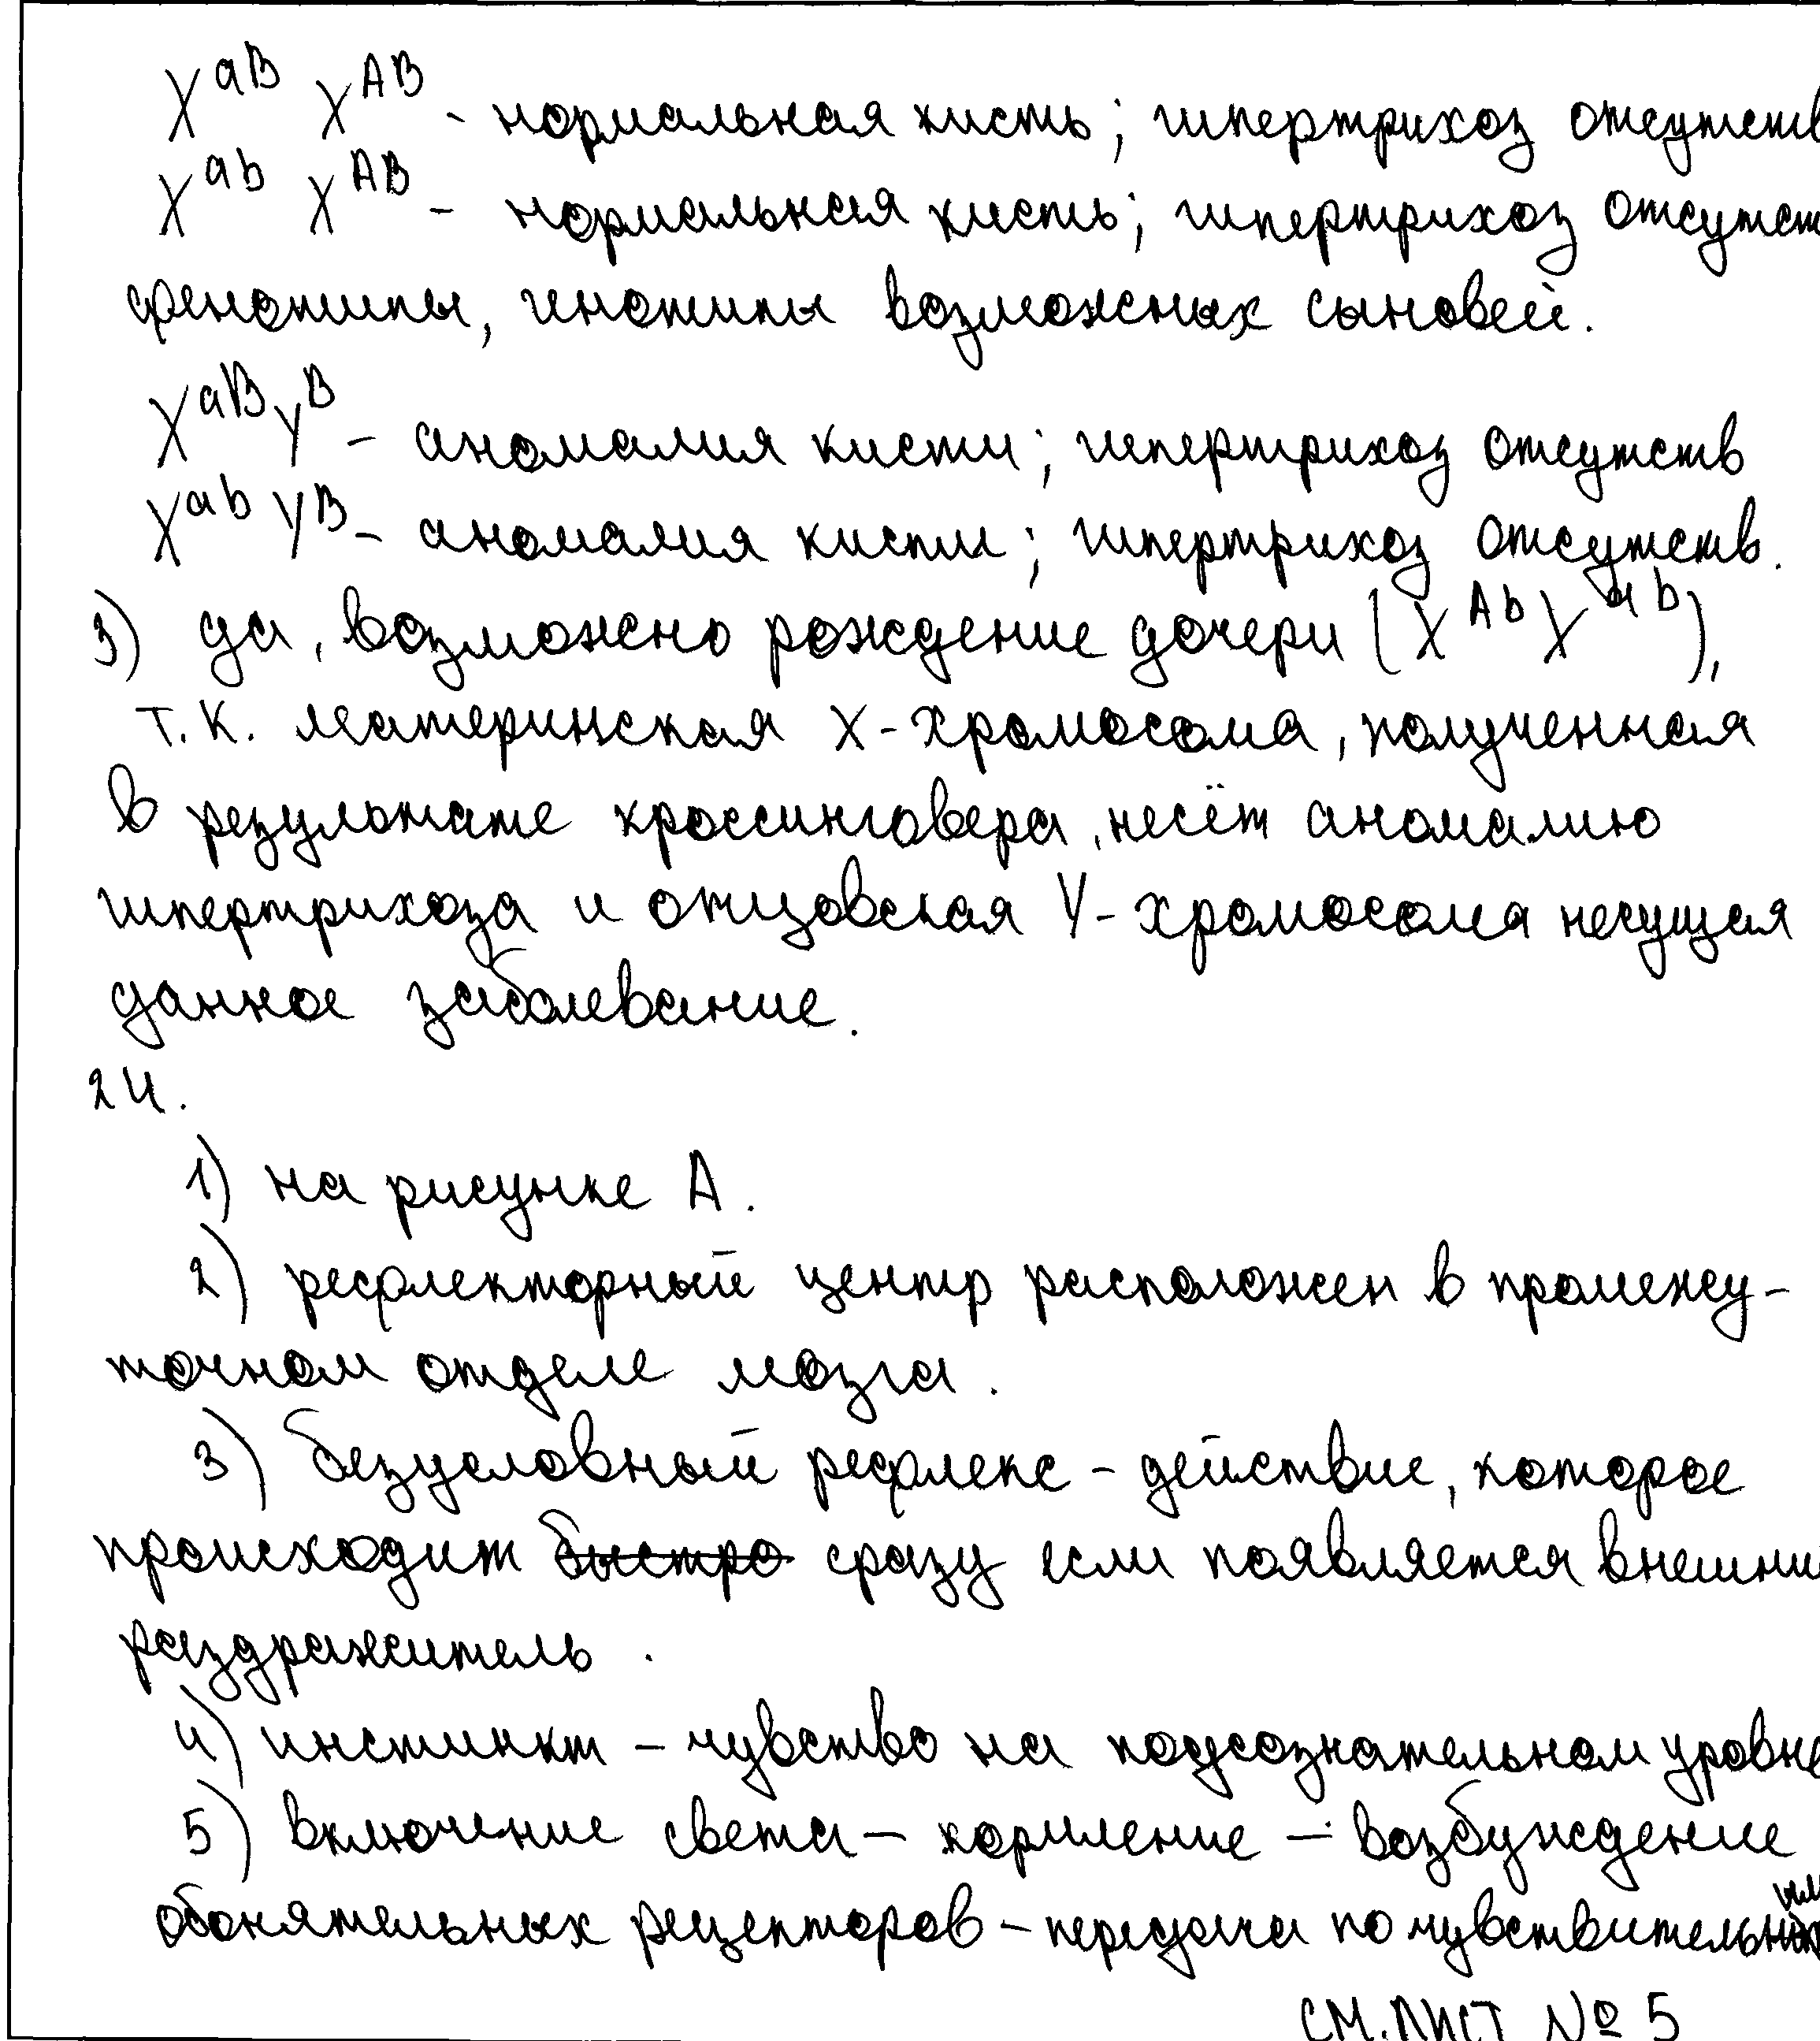 X^aB X^AB - нормальная кисть; гипертрихоз отсутств
X^ab X^AB - нормальная кисть; гипертрихоз отсутст
фенотипы, генотипы возможных сыновей.
X^aB Y^B - аномалия кисти; гипертрихоз отсутств
X^ab Y^B - аномалия кисти; гипертрихоз отсутств.
3) да, возможно рождение дочери (X^Ab X^ab),
т.к. материнская х-хромосома, полученная
в результате кроссинговера, несёт аномалию
гипертрихоза и отцовская Y-хромосома несущая
данное заболевание.
24.
1) на рисунке А.
2) рефлекторный центр расположен в промежу-
точном отделе мозга.
3) безусловный рефлекс - действие, которое
происходит быстро сразу если появляется внешни
раздражитель.
4) инстинкт - чувство на подсознательном уровне
5) включение света - кормление - возбуждение
обонятельных рецепторов - передача по чувствительным
СМ. ЛИСТ № 5